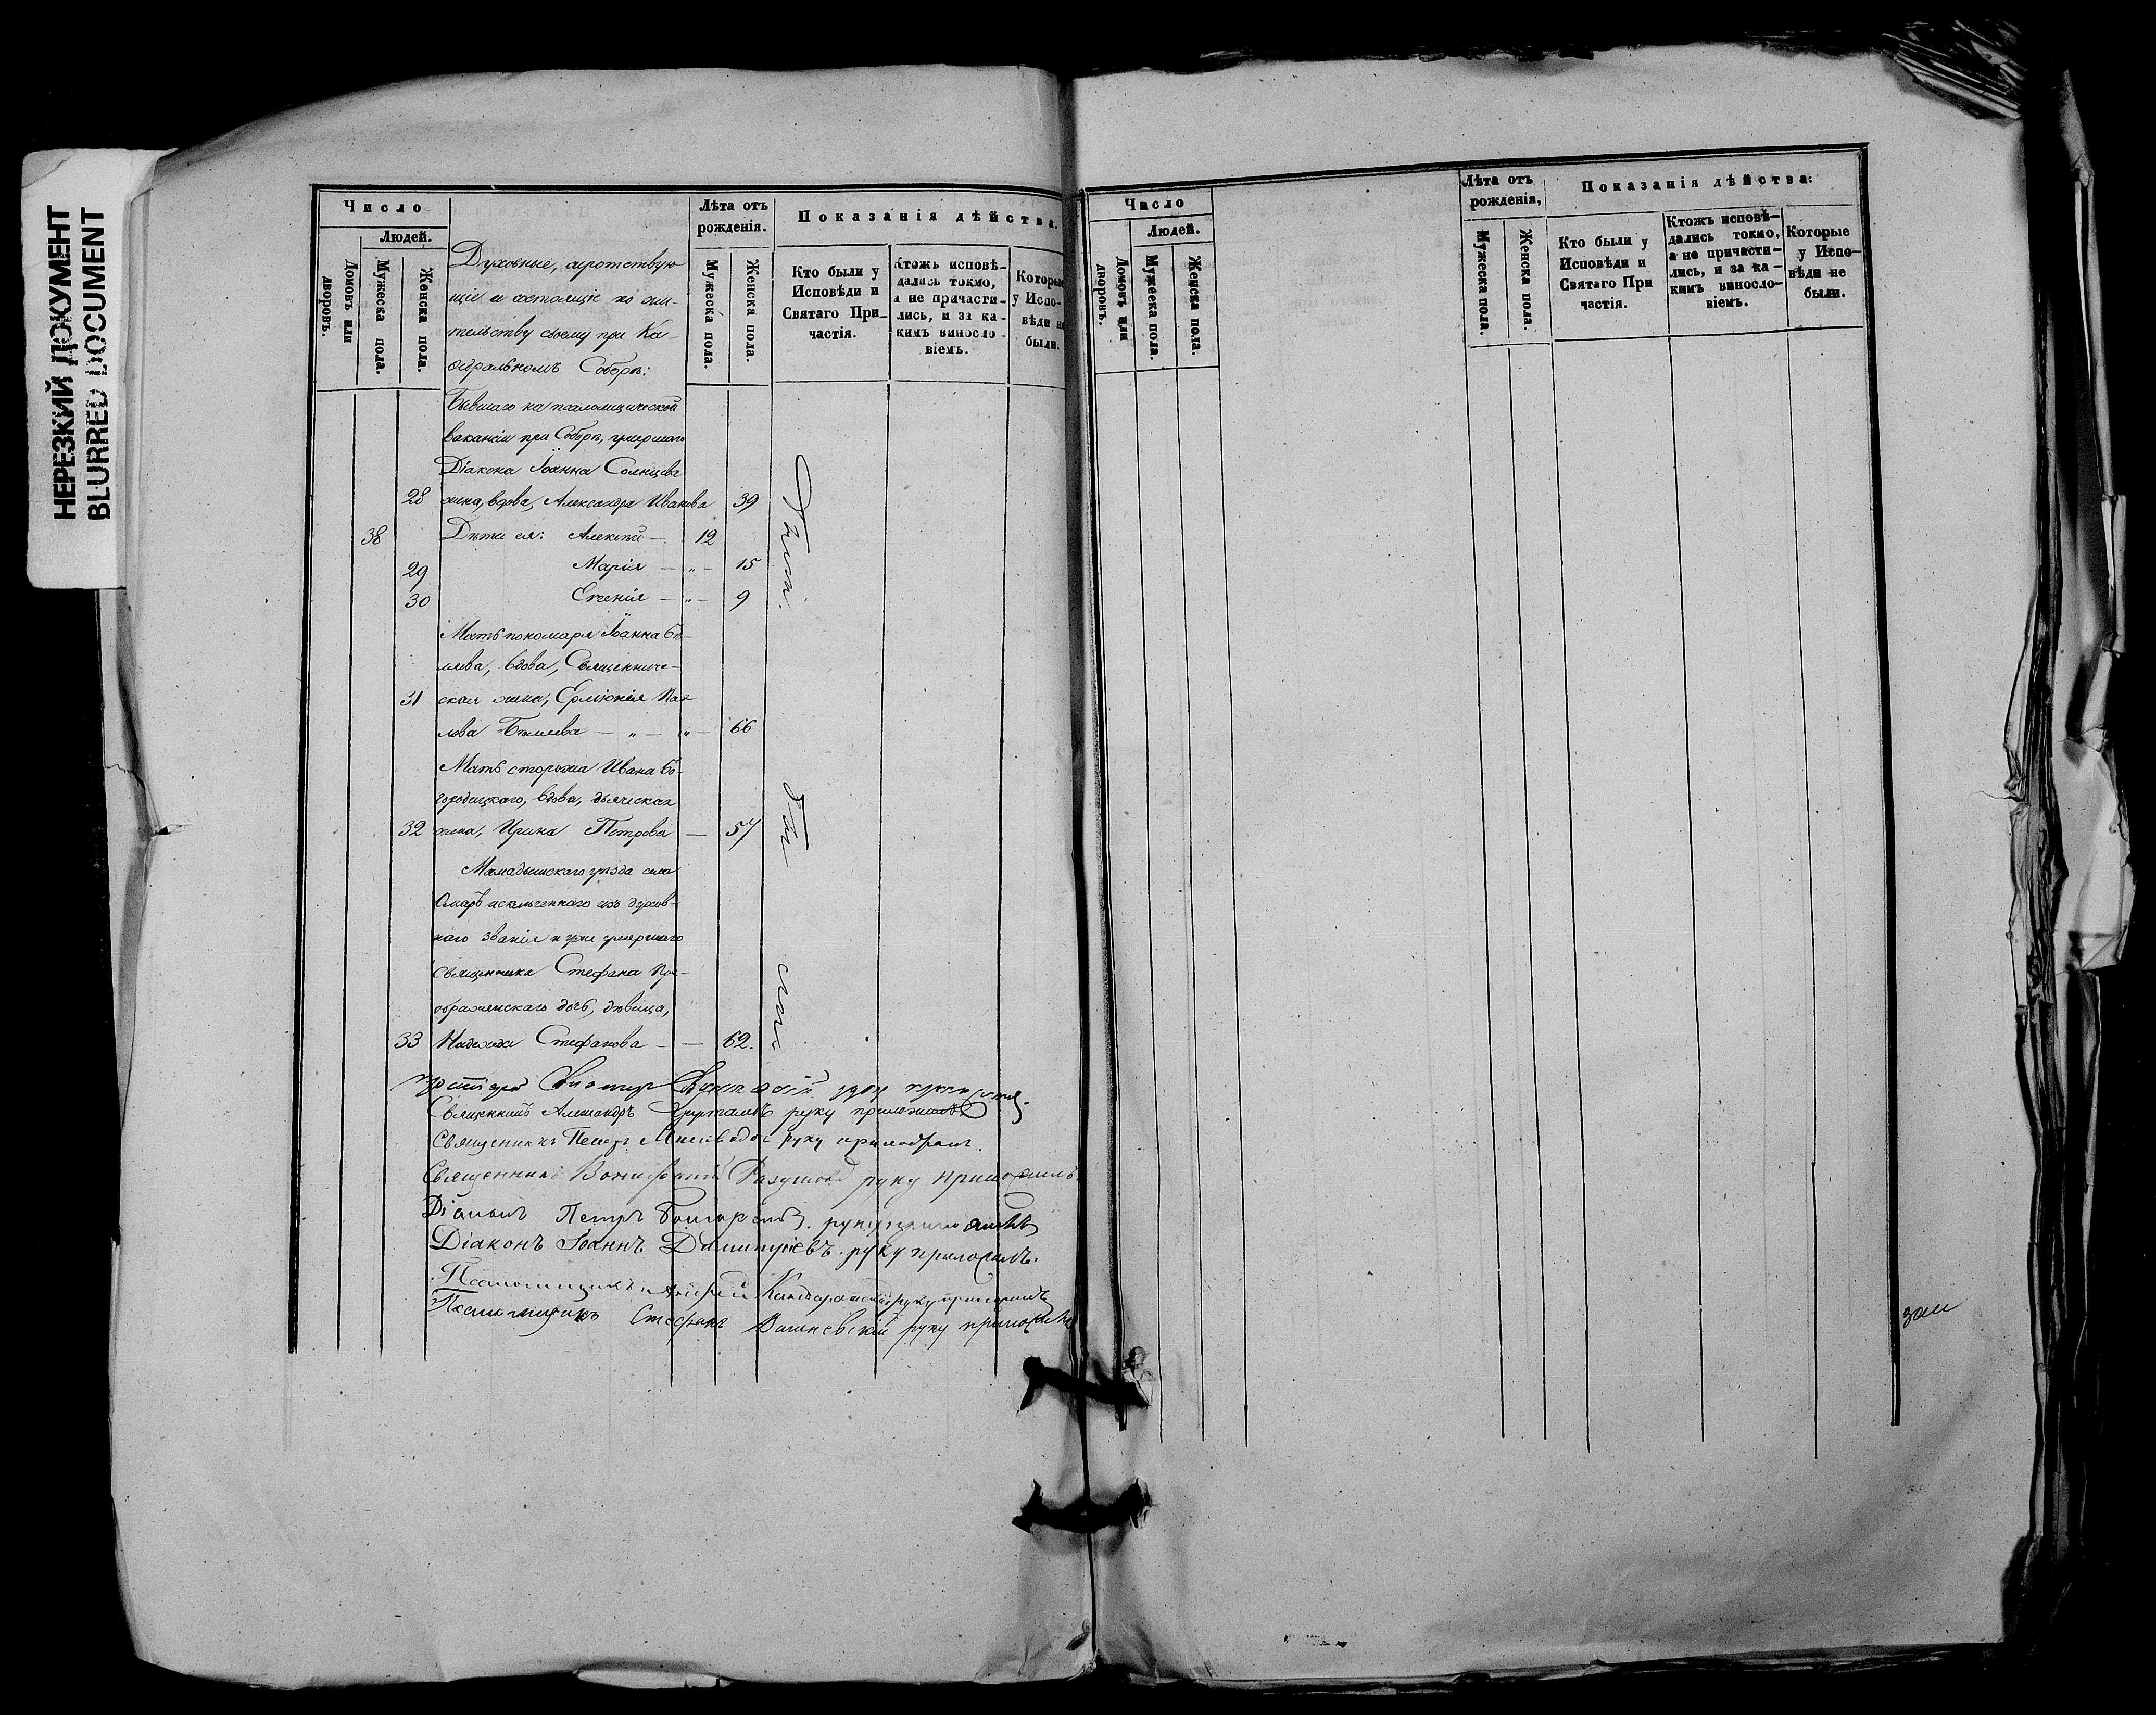 НЕРЕЗКИЙ ДОКУМЕНТ
BLURRED DOCUMENT
Число
Людей.
Домовъ или дворовъ.
Мужеска пола.
Женска пола.
Лѣта отъ рожденія.
Мужеска пола.
Женска пола.
Показанія дѣйства.
Кто были у Исповѣди и Святаго При-
частія.
Ктожъ исповѣ-
дались токмо,
а не причасти-
лись, и за ка-
кимъ виносло-
віемъ.
Которые
у Испо-
вѣди не
были.
Духовные, сиротствую
щіе и состоящіе по
тельству своему при Ка-
ѳедральномъ Соборѣ:
Бывшаго на псаломщической
вакансіи при Соборѣ, умершаго
Діакона Іоанна Солнцева
28 жена, вдова, Александра Иванова 39
38 Дѣти ея: Алексѣй — 12
29 Марія — „ — 15
30 Евгенія — „ — 9
Мать пономаря Іоанна Бѣ-
ляева, вдова, Священниче-
31 ская жена, Ермионія Пав
лова Бѣляева — „ — „ — 66
Мать сторожа Ивана Бо-
городицкаго, вдова, дьяческая
32 жена, Ирина Петрова — 57
Мамадышскаго уѣзда села
Омаръ исключеннаго изъ духов-
наго званія и уже умершаго
Священника Стефана Пре-
ображенскаго дочь, дѣвица,
33 Надежда Стефанова — — 62.
Были.
Священникъ Александръ руку приложилъ
Священникъ Петръ руку приложилъ.
Священникъ Вонифатій руку приложилъ.
Діаконъ Петръ руку приложилъ
Діаконъ Іоаннъ Димитріевъ руку приложилъ.
Псаломщикъ Андрей руку приложилъ
Псаломщикъ Стефанъ Вишневскій руку приложилъ
Число
Людей.
Домовъ или дворовъ.
Мужеска пола.
Женска пола.
Лѣта отъ рожденія,
Мужеска пола.
Женска пола.
Показанія дѣйства:
Кто были у
Исповѣди и
Святаго При
частія.
Ктожъ исповѣ-
дались токмо,
а не причасти-
лись, и за ка-
кимъ виносло-
віемъ.
Которые
у Испо-
вѣди не
были.